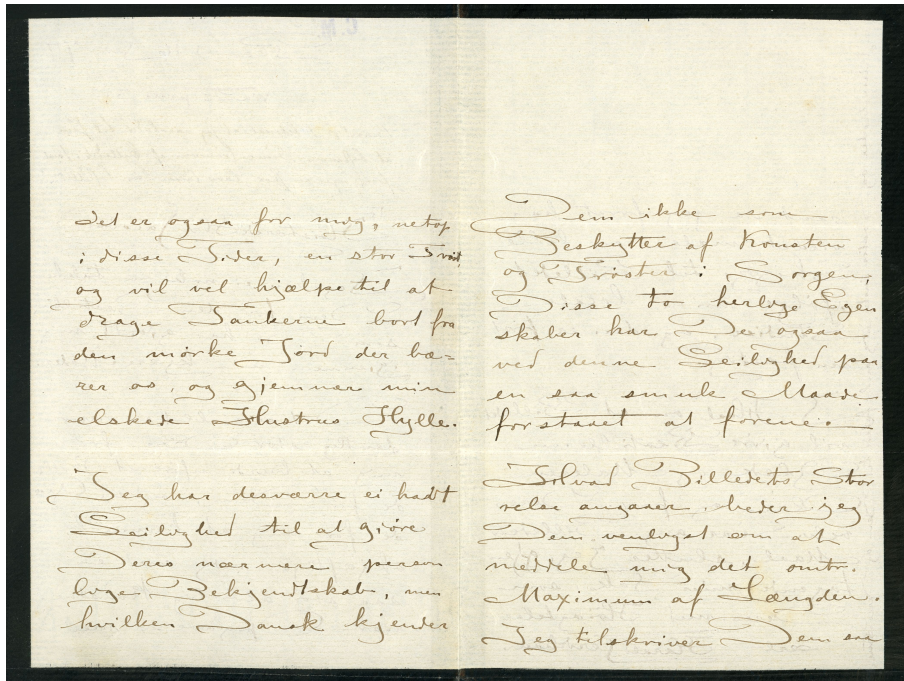 Det er ogsaa for mig, netop
i disse Tider, en stor Trøst,
og vil vel hjælpe til at
drage Tankerne bort fra
den mørke Jord der bæ=
rer os, og gjemmer min
elskede Hustrus Hylle.
Jeg har desværre ei hadt
Leilighed til at gjöre
Deres nærmere person
lige Bekjendtskab, men
hvilken Dansk kjender
Dem ikke som
Beskytter af Konsten
og Trøster i Sorgen,
Disse to herlige Egen
skaber har De ogsaa
ved denne Leilighed paa
en saa smuk Maade
forstaaet at forene.
Hvad Billedets Stør
relse angaaer, beder jeg
Dem venligst om at
meddele mig det omtr.
Maximum af Længden.
Jeg tilskriver Dem saa